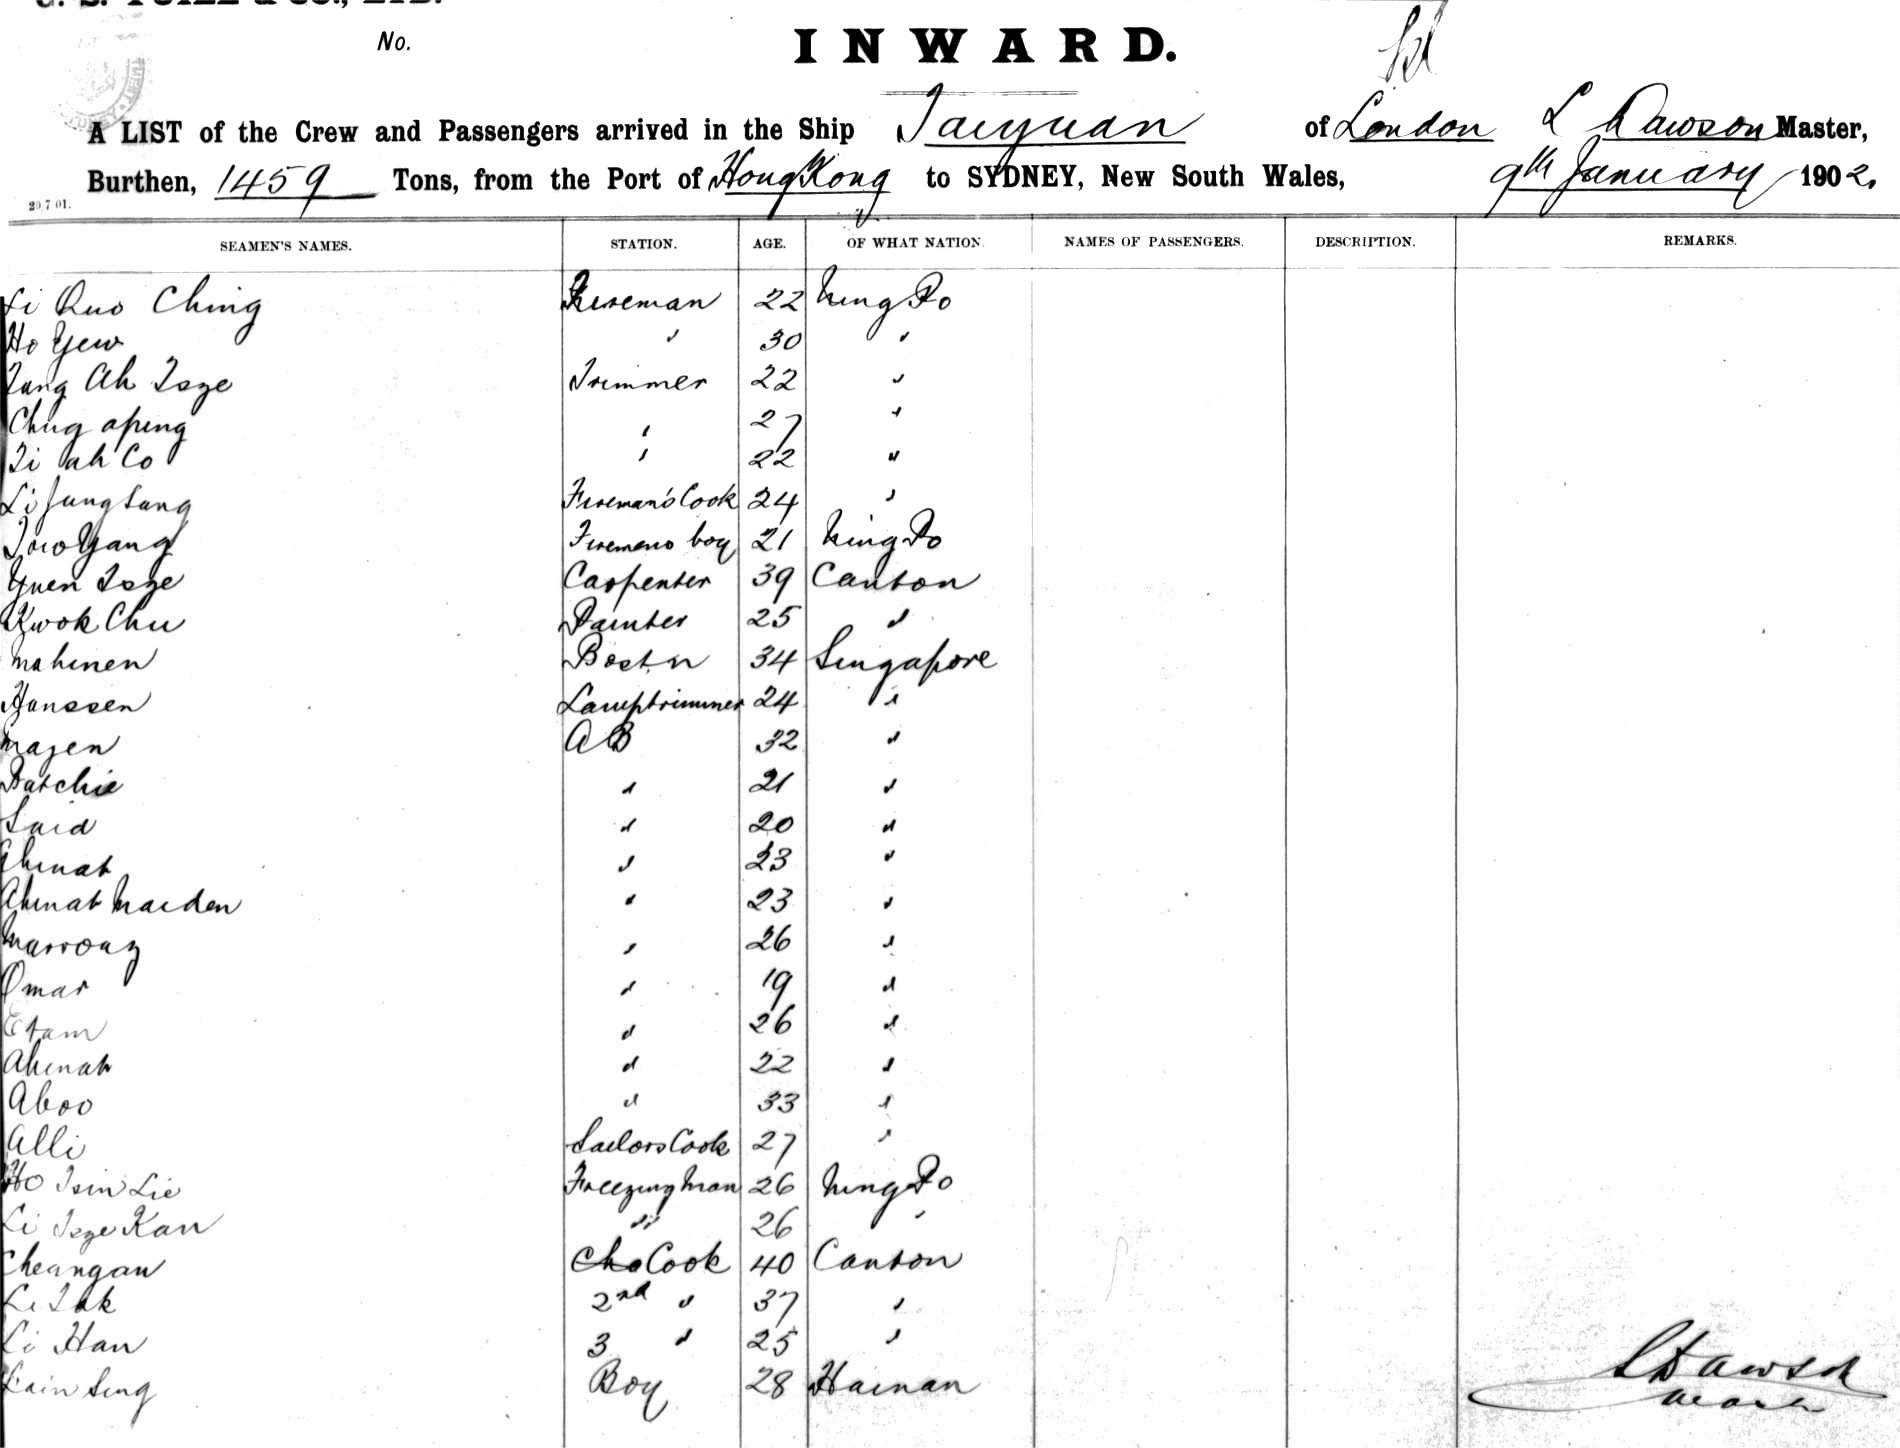 No.
INWARD.
A LIST of the Crew and Passengers arrived in the Ship Taiyuan of London L Dawson Master,
Burthen, 1459 Tons, from the Port of HongKong to SYDNEY, New South Wales, 9th January 1902.
20.7.01.
SEAMEN'S NAMES. STATION. AGE. OF WHAT NATION. NAMES OF PASSENGERS. DESCRIPTION. REMARKS.
Li Quo Ching Fireman 22 Ning Po
Ho Yew " 30 "
Tang Ah Tsze Trimmer 22 "
Chug aping " 27 "
Ti ah Co " 22 "
Li Jung Sang Fireman's Cook 24 "
Yang Firemens boy 21 Ning Po
Yuen Tsze Carpenter 39 Canton
Kwok Chu Painter 25 "
Mahinen Bos'tn 34 Singapore
Hanssen Lamptrimmer 24 "
Majen AB 32 "
Batchie " 21 "
Said " 20 "
Ahmat " 23 "
Ahmat Maiden " 23 "
" 26 "
Omar " 19 "
Etam " 26 "
Ahmat " 22 "
Aboo " 33 "
Alli Sailors Cook 27 "
Ho Tsin Lie Freezing Man 26 Ning Po
Li Tsze Kan " 26 "
Cheangan Cook 40 Canton
Li Tak 2nd " 37 "
Li Han 3 " 25 "
Sing Boy 28 Hainan
L Dawson